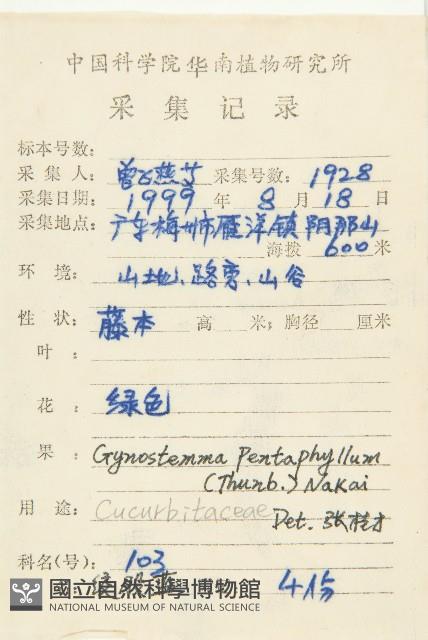 中国科学院华南植物研究所
采集记录
标本号数:
采集人: 曾燕 采集号数: 1928
采集日期: 1999 年 8 月 18 日
采集地点: 广东梅州市雁洋镇阴那山
海拨 600 米
环境: 山地、路旁、山谷
性状: 藤本 高 米; 胸径 厘米
叶:
花: 绿色
果: Gynostemma pentaphyllum
(Thunb.) Nakai
用途: Cucurbitaceae
Det. 张桂才
科名(号): 103
4份
國立自然科學博物館
NATIONAL MUSEUM OF NATURAL SCIENCE